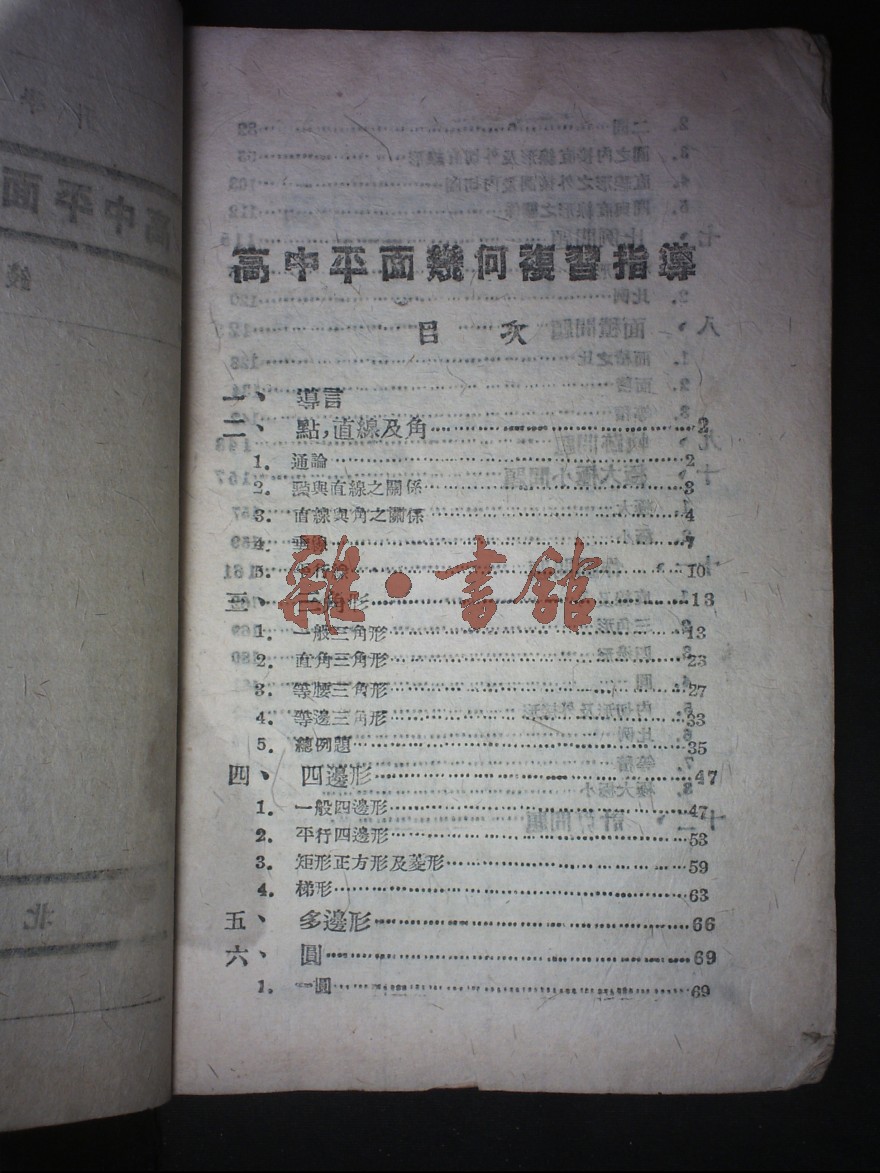 高中平面幾何複習指導
目 次
一、 導言
二、 點,直線及角……2
1. 通論……2
2. 點與直線之關係……3
3. 直線與角之關係……4
4. 垂線……7
5. 平行線……10
三、 三角形……13
1. 一般三角形……13
2. 直角三角形……23
3. 等腰三角形……27
4. 等邊三角形……33
5. 總例題……35
四、 四邊形……47
1. 一般四邊形……47
2. 平行四邊形……53
3. 矩形正方形及菱形……59
4. 梯形……63
五、 多邊形……66
六、 圓……69
1. 一圓……69
雜·書館